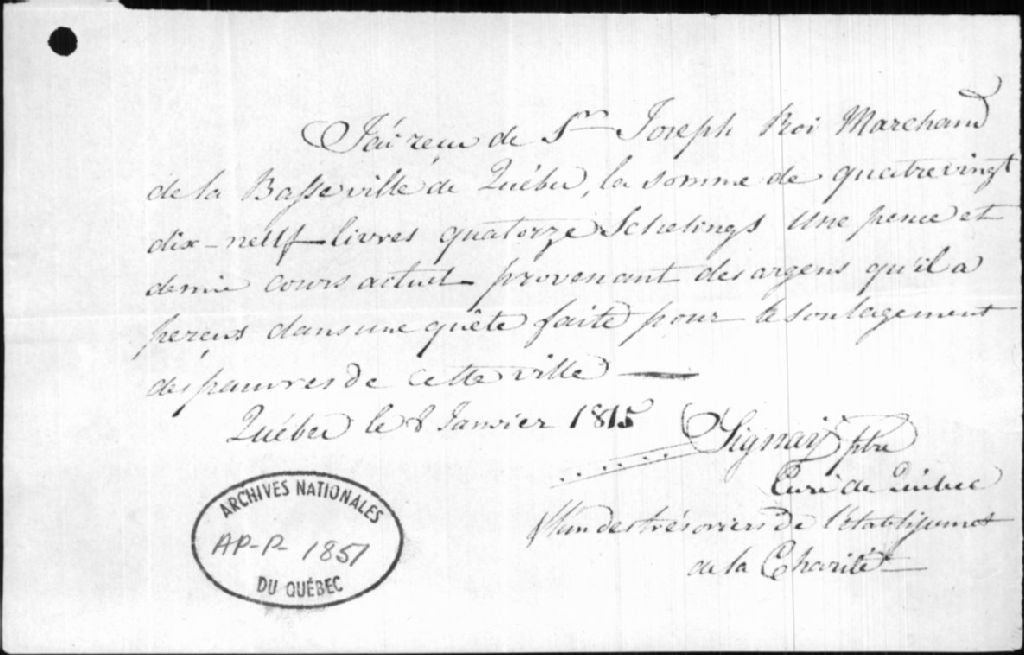 J'ai reçu de Sr Joseph Roi Marchand
de la Basse ville de Québec, la somme de quatre vingt
dix-neuf livres quatorze Schelings une pence et
demie cours actuel provenant des argens qu'il a
perçus dans une quête faite pour le soulagement
des pauvres de cette ville —
Québec le 8 Janvier 1815
Signaÿ ptre
Curé de Québec
l'un des trésoriers de l'établissement
de la Charité —
ARCHIVES NATIONALES
AP-P- 1851
DU QUÉBEC